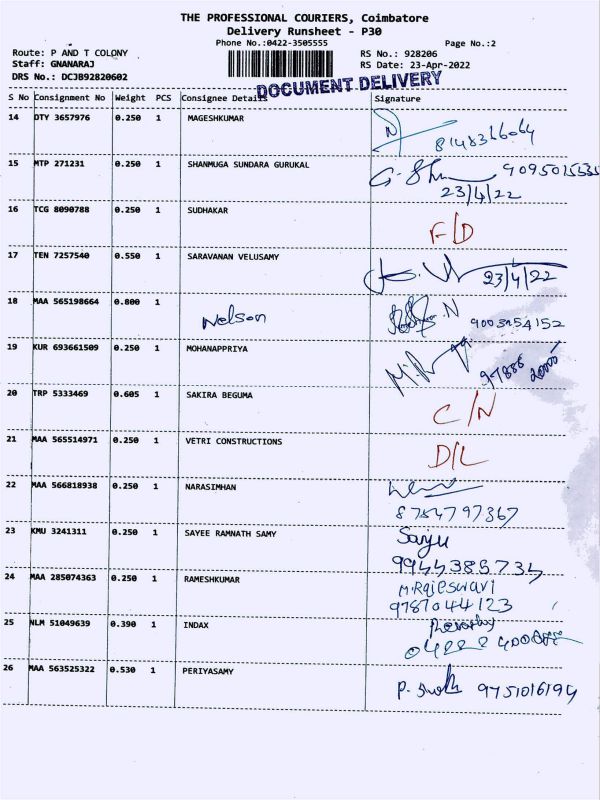 THE PROFESSIONAL COURIERS, Coimbatore
Delivery Runsheet - P30
Phone No.:0422-3505555 Page No.:2
Route: P AND T COLONY RS No.: 928206
Staff: GNANARAJ RS Date: 23-Apr-2022
DRS No.: DCJB92820602
DOCUMENT DELIVERY
S No Consignment No Weight PCS Consignee Details Signature
14 DTY 3657976 0.250 1 MAGESHKUMAR
15 MTP 271231 0.250 1 SHANMUGA SUNDARA GURUKAL
23/4/22
16 TCG 8090788 0.250 1 SUDHAKAR F/D
17 TEN 7257540 0.550 1 SARAVANAN VELUSAMY 23/4/22
18 MAA 565198664 0.800 1 Nelson
19 KUR 693661509 0.250 1 MOHANAPPRIYA
20 TRP 5333469 0.605 1 SAKIRA BEGUMA C/N
21 MAA 565514971 0.250 1 VETRI CONSTRUCTIONS D/L
22 MAA 566818938 0.250 1 NARASIMHAN
8754797367
23 KMU 3241311 0.250 1 SAYEE RAMNATH SAMY Sanju
9944385734
24 MAA 285074363 0.250 1 RAMESHKUMAR M.Rajeswari
9787044123
25 NLM 51049639 0.390 1 INDAX
26 MAA 563525322 0.530 1 PERIYASAMY 9751016194